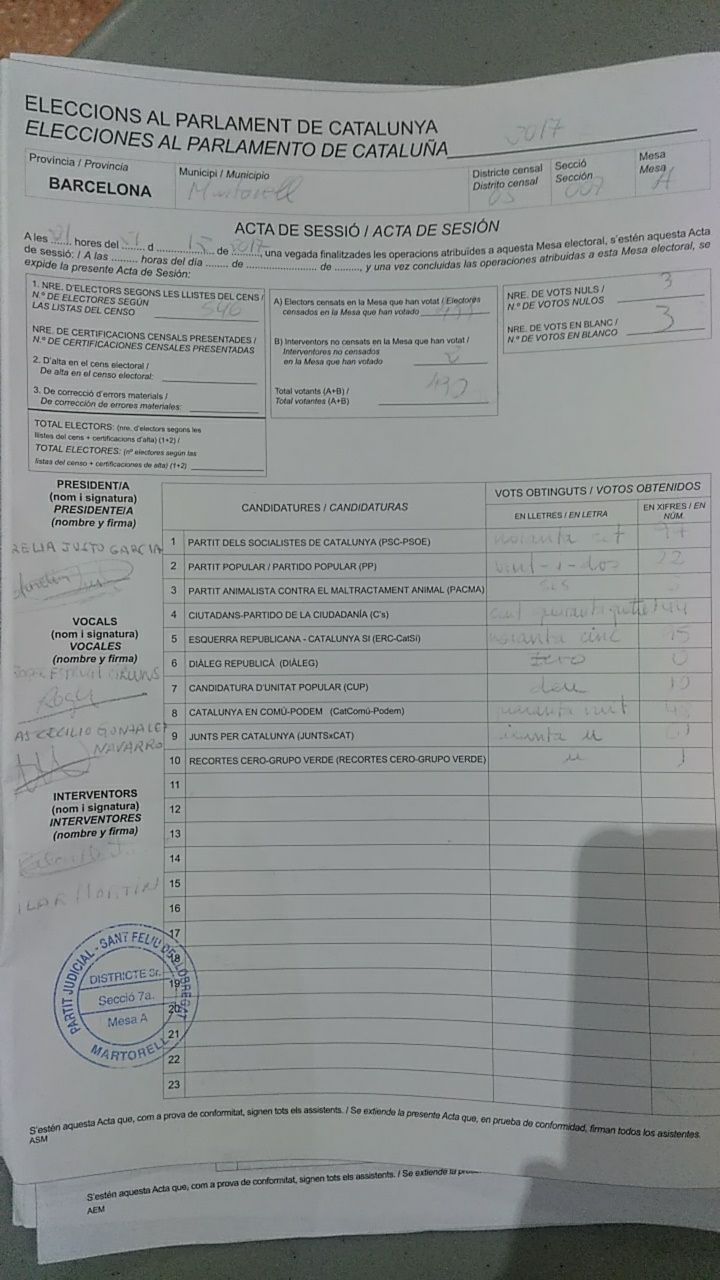 ELECCIONS AL PARLAMENT DE CATALUNYA
ELECCIONES AL PARLAMENTO DE CATALUÑA 2017
Provincia / Provincia
BARCELONA
Municipi / Municipio
Martorell
Districte censal
Distrito censal
03
Secció
Sección
007
Mesa
Mesa
A
ACTA DE SESSIÓ / ACTA DE SESIÓN
A les ....... hores del ....... d ................ de 2017, una vegada finalitzades les operacions atribuïdes a aquesta Mesa electoral, s'estén aquesta Acta
de sessió: / A las ........ horas del día ....... de ...................... de ........., y una vez concluidas las operaciones atribuidas a esta Mesa electoral, se
expide la presente Acta de Sesión:
1. NRE. D'ELECTORS SEGONS LES LLISTES DEL CENS /
N.º DE ELECTORES SEGÚN
LAS LISTAS DEL CENSO 546
NRE. DE CERTIFICACIONS CENSALS PRESENTADES /
N.º DE CERTIFICACIONES CENSALES PRESENTADAS
2. D'alta en el cens electoral /
De alta en el censo electoral:
3. De correcció d'errors materials /
De corrección de errores materiales:
TOTAL ELECTORS: (nre. d'electors segons les
llistes del cens + certificacions d'alta) (1+2) /
TOTAL ELECTORES: (nº electores según las
listas del censo + certificaciones de alta) (1+2)
A) Electors censats en la Mesa que han votat / Electores
censados en la Mesa que han votado
B) Interventors no censats en la Mesa que han votat /
Interventores no censados
en la Mesa que han votado
Total votants (A+B) /
Total votantes (A+B)
NRE. DE VOTS NULS /
N.º DE VOTOS NULOS 3
NRE. DE VOTS EN BLANC /
N.º DE VOTOS EN BLANCO 3
PRESIDENT/A
(nom i signatura)
PRESIDENTE/A
(nombre y firma)
JUSTO GARCIA
VOCALS
(nom i signatura)
VOCALES
(nombre y firma)
CECILIO GONZALEZ
NAVARRO
INTERVENTORS
(nom i signatura)
INTERVENTORES
(nombre y firma)
CANDIDATURES / CANDIDATURAS
VOTS OBTINGUTS / VOTOS OBTENIDOS
EN LLETRES / EN LETRA
EN XIFRES / EN NÚM.
1 PARTIT DELS SOCIALISTES DE CATALUNYA (PSC-PSOE) noranta set 97
2 PARTIT POPULAR / PARTIDO POPULAR (PP) vint-i-dos 22
3 PARTIT ANIMALISTA CONTRA EL MALTRACTAMENT ANIMAL (PACMA)
4 CIUTADANS-PARTIDO DE LA CIUDADANÍA (C's) cent quaranta quatre 144
5 ESQUERRA REPUBLICANA - CATALUNYA SI (ERC-CatSí) noranta cinc 95
6 DIÀLEG REPUBLICÀ (DIÀLEG) zero 0
7 CANDIDATURA D'UNITAT POPULAR (CUP) deu 10
8 CATALUNYA EN COMÚ-PODEM (CatComú-Podem) quaranta vuit 48
9 JUNTS PER CATALUNYA (JUNTSxCAT) seixanta u 61
10 RECORTES CERO-GRUPO VERDE (RECORTES CERO-GRUPO VERDE) u 1
11
12
13
14
15
16
17
18
19
20
21
22
23
PARTIT JUDICIAL - SANT FELIU DE LLOBREGAT
DISTRICTE 3r.
Secció 7a.
Mesa A
MARTORELL
S'estén aquesta Acta que, com a prova de conformitat, signen tots els assistents. / Se extiende la presente Acta que, en prueba de conformidad, firman todos los asistentes.
ASM
S'estén aquesta Acta que, com a prova de conformitat, signen tots els assistents. / Se extiende la
AEM